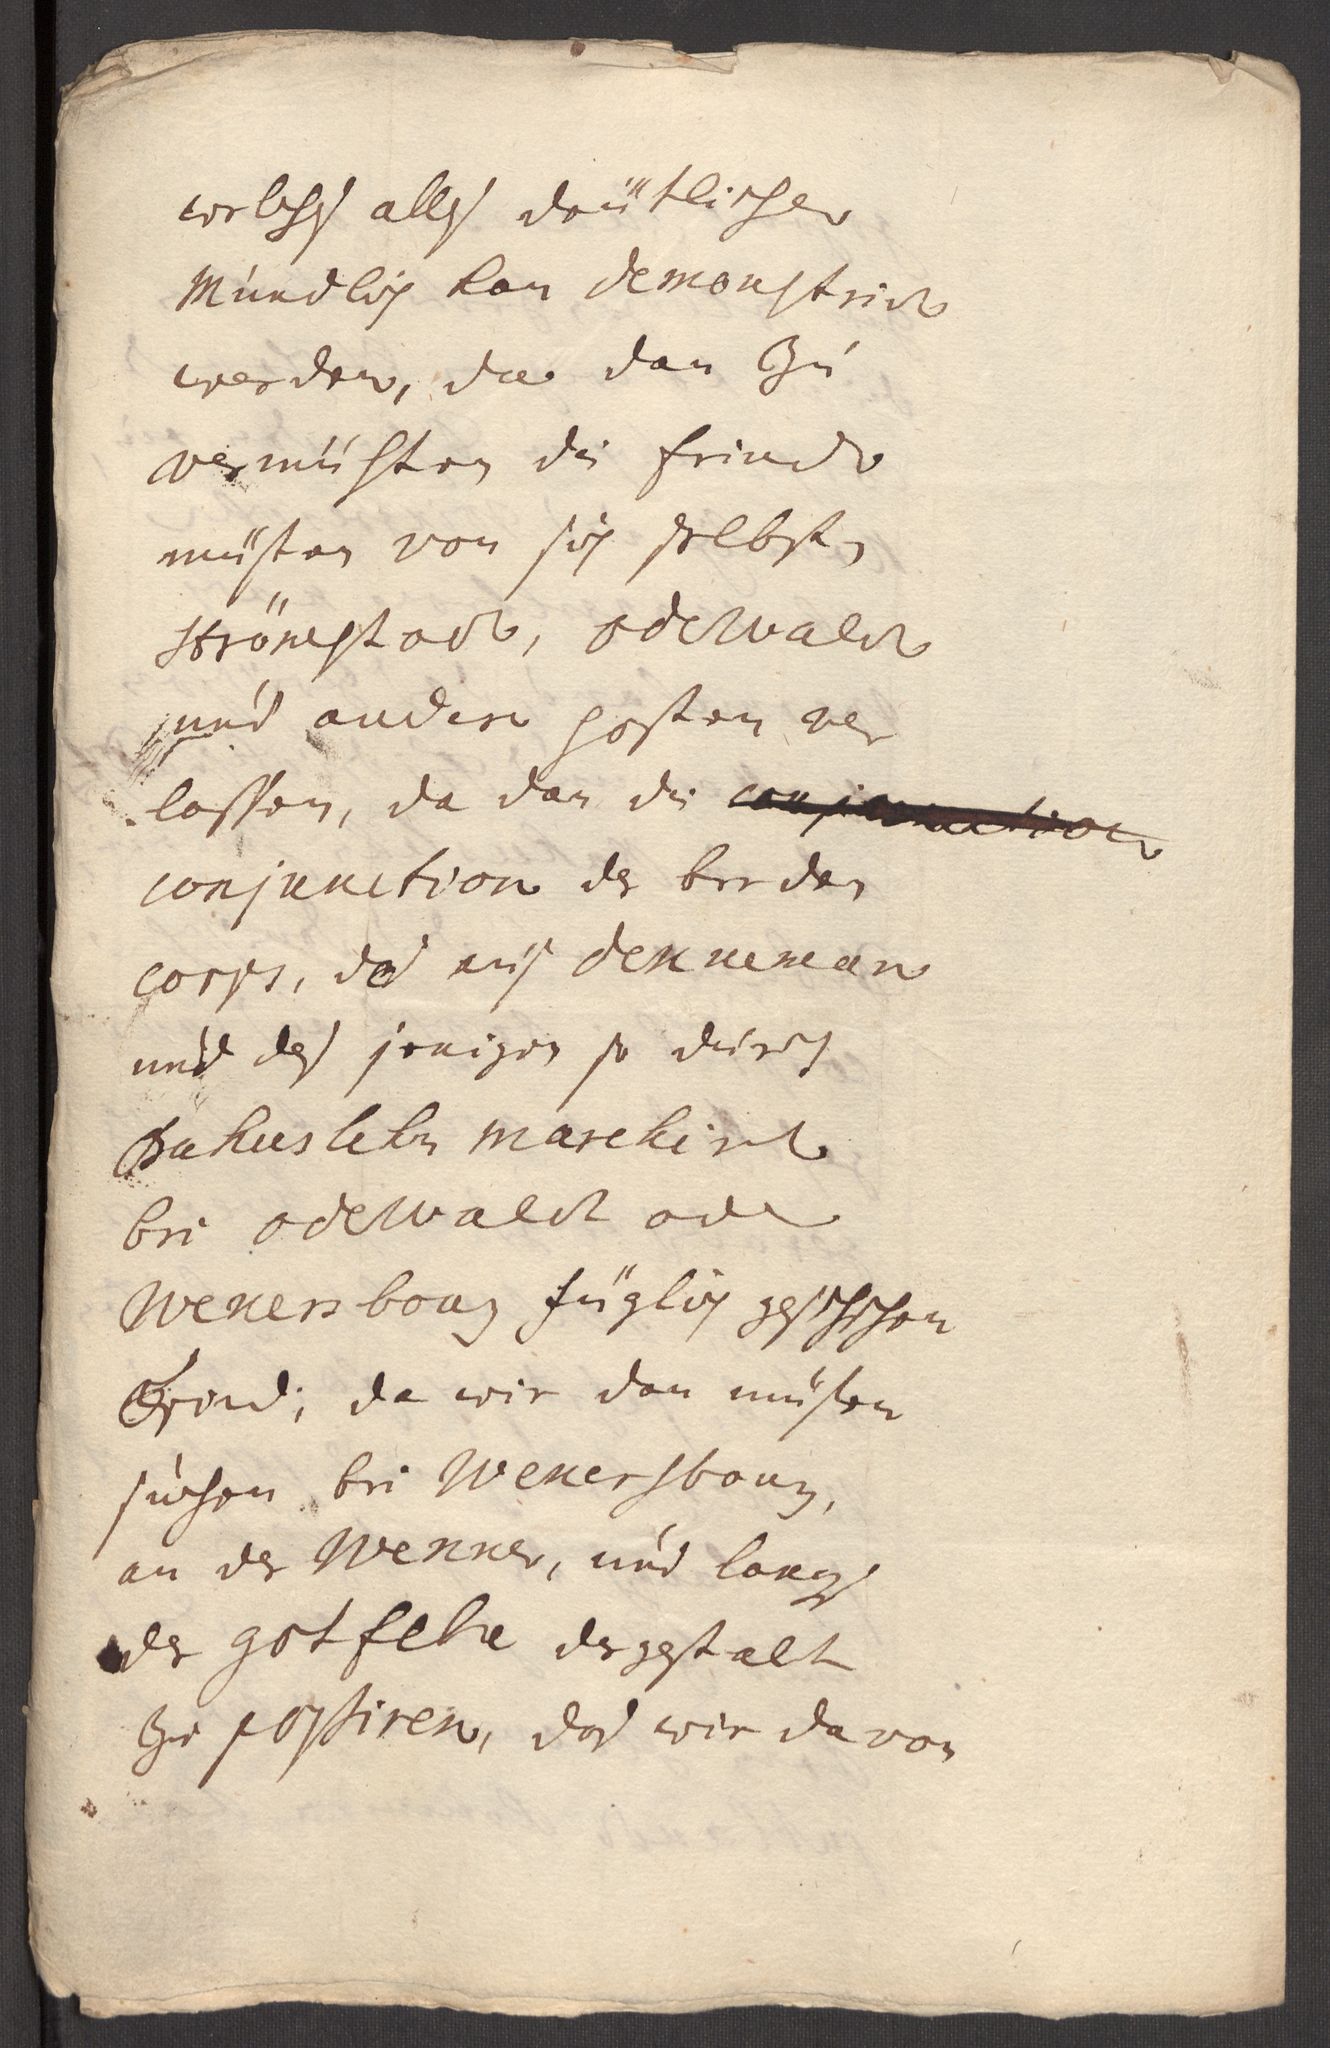 welches alles deütlicher
Mündlich kan demonstrirt
werden, da dan zu
vermuhten die feinde
müsten von sich selbsten
Strömstadt, odewaldt
und andere posten ver
lassen, da dan die conjunction
conjunction der beiden
corps, das aus dennemarc
und des jenigen so durch
Bahuslehn marchirt
bei odewaldt oder
Wenersbourg füglich geschehen
kond; da wir dan müsten
suchen bei Wenersbourg,
an der Wenner, und langs
der gotfelbe dergestalt
zu postiren, das wir davon